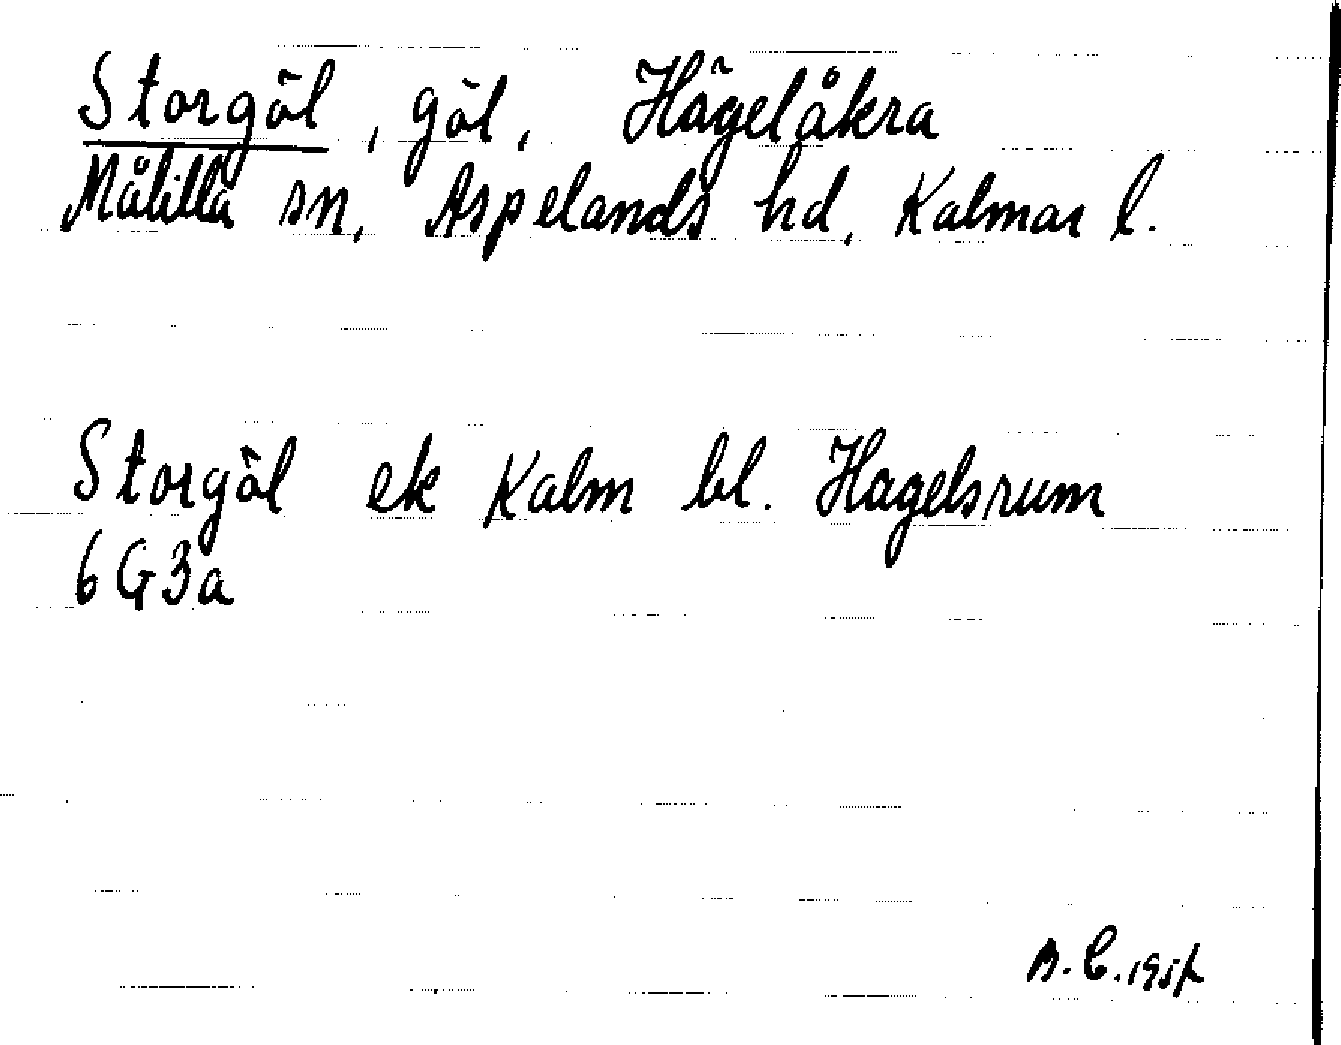 Storgöl, göl, Hägelåkra
Målilla sn, Aspelands hd, Kalmar l.
Storgöl ek Kalm bl. Hagelsrum
6G3a
B.C.